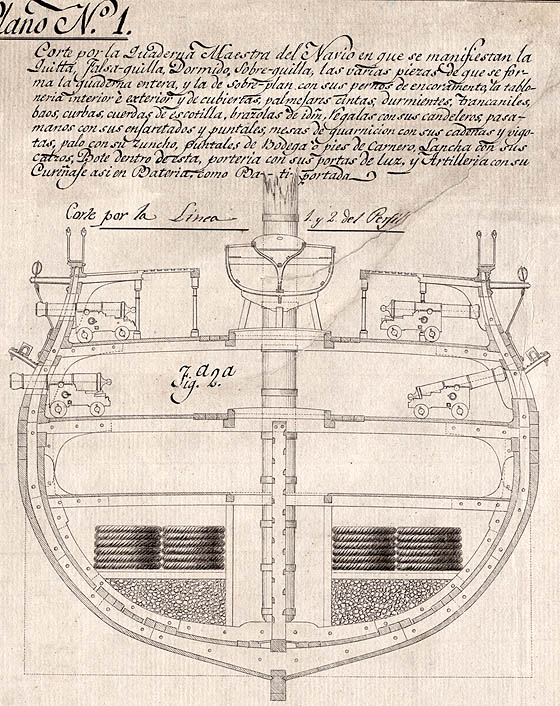 Plano N.º 1.
Corte por la Quaderna Maestra del Navio en que se manifiestan la
Quilla, Falsa-quilla, Dormido, Sobre-quilla, las varias piezas de que se for-
ma la quaderna entera, y la de sobre-plan con sus pernos de encoramento, la tablo-
neria interior è exterior y de cubiertas, palmejares, cintas, durmientes, trancaniles,
baos, curbas, cuerdas de escotilla, brazolas de idñ, regalas con sus candeleros, pasa-
manos con sus enjaretados y puntales, mesas de guarnicion con sus cadenas y vigo-
tas, palo con su zuncho, puntales de Bodega ò pies de Carnero, Lancha con sus
calzos, Bote dentro de esta, porteria con sus portas de luz, y Artilleria con su
Cureñaje asi en Bateria, como Ba-tiportada
Corte por la Linea 1. y 2. del Perfil
Fig.ª 2.ª